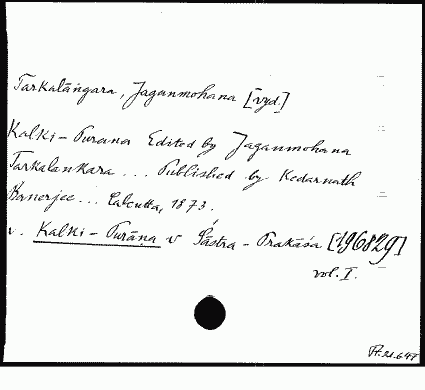 Tarkalāṅgara, Jaganmohana [vyd.]
Kalki-Purana Edited by Jaganmohana
Tarkalankara ... Published by Kedarnath
Banerjee ... Calcutta, 1873.
v. Kalki-Purāṇa v Śāstra-Prakāśa [196829]
vol. I.